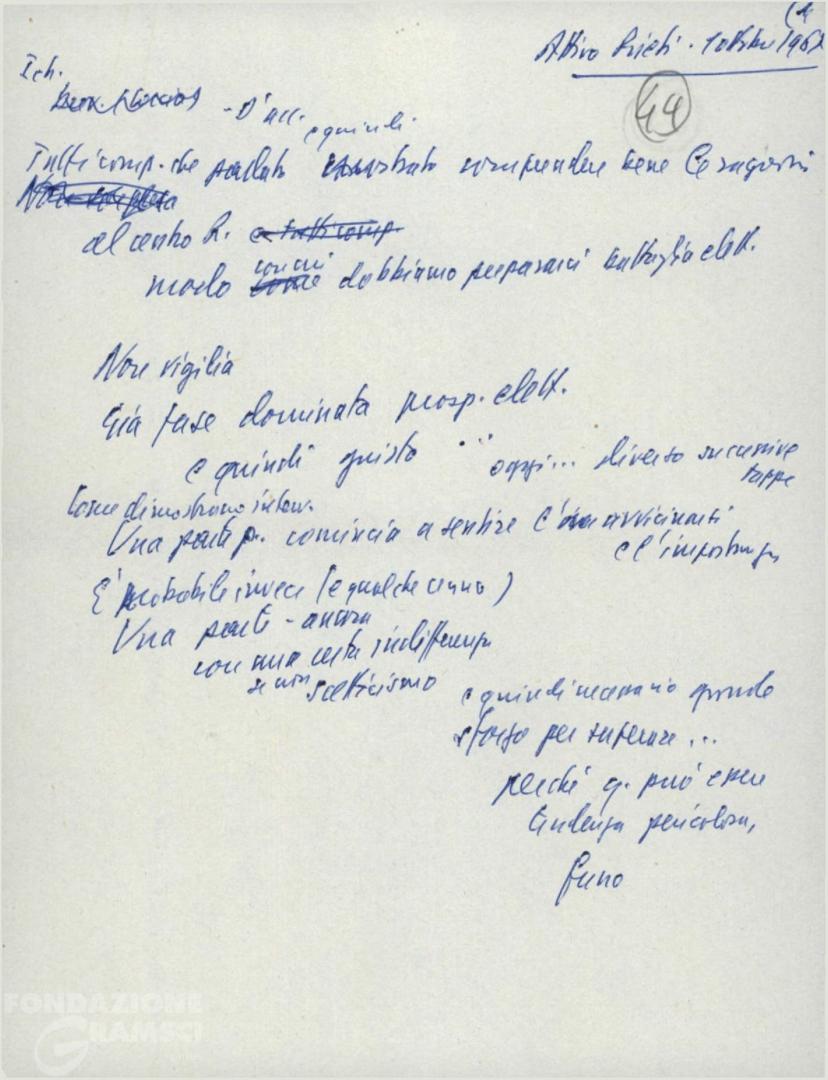 Attivo Rieti - 1 ottobre 1967
44
Ich.
- D'acc.
e quindi
Tutti comp. che parlato mostrato comprendere bene le ragioni
al centro R. e tutti comp.
modo con cui come dobbiamo prepararci battaglia elett.
Non vigilia
Già fase dominata prosp. elett.
e quindi giusto oggi... diverso successive
tappe
Come dimostrano interv.
Una parte p. comincia a sentire l'avvicinarsi
e l'importanza
E' probabile invece (e qualche cenno)
Una parte - ancora
con una certa indifferenza
se non scetticismo
e quindi necessario grande
sforzo per superare...
perché q. può essere
tendenza pericolosa,
freno
FONDAZIONE
GRAMSCI